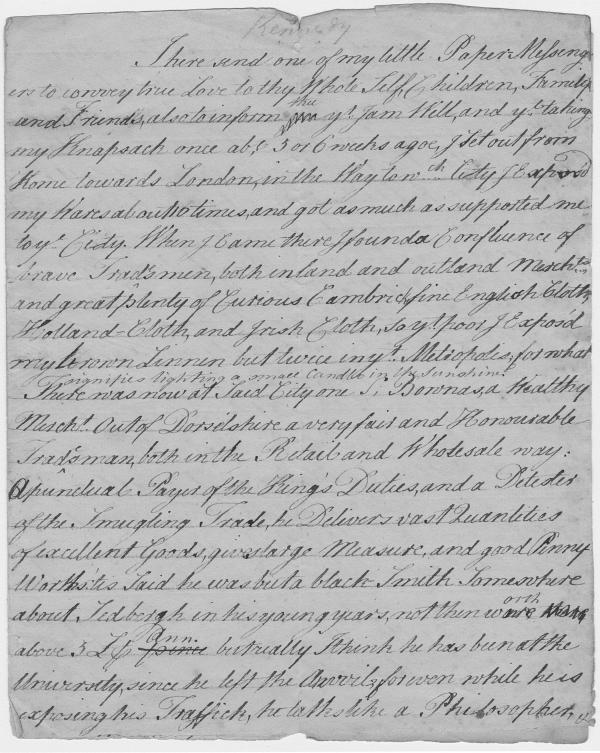 Kennedy
I here send one of my little Paper-Messeng-
ers to convey true Love to thy Whole Self, Children, Family
and Friends, also to inform thee yt. I am Well, and yt. taking
my Knapsach once abt. 5 or 6 weeks agoe, I Set out from
Home towards London, in the Way to wch. City I Expos'd
my Wares about 10 times, and got as much as supported me
to ye. City. When I Came there I found a Confluence of
brave Tradsmen, both inland and outland Merchts.
and great plenty of Curious Cambrick, fine English Cloth,
Holland-Cloth, and Irish Cloth, So yt. poor I Expos'd
my brown Linnen but twice in yt. Metropolis, for what
signifies lighting a small Candle in the Sunshine?
There was now at Said City one S: Bownas, a Wealthy
Mercht. Out of Dorsetshire a very fair and Honourable
Tradsman, both in the Retail and Wholesale way:
A punctual Payer of the King's Duties, and a Detester
of the Smugling Trade, he Delivers vast Quantities
of excellent Goods, gives large Measure, and good Penny
Worths: tis Said he was but a black-Smith Somewhere
about Jedbergh in his young years, not then worth
above 5 L Ann. but really I think he has been at the
University, since he left the Anvoil, for even while he is
exposing his Traffick, he talks like a Philosopher,